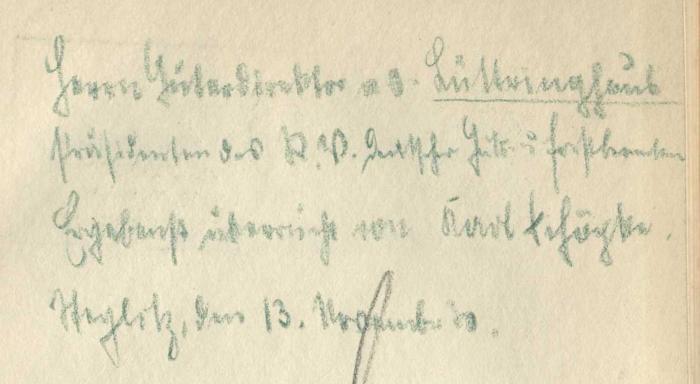 Herrn Güterdirektor a. D. Lüttringhaus
Präsidenten des R. V. Deutscher Guts- u. Forstbeamten
Ergebenst überreicht von Karl
Steglitz, den 13. November